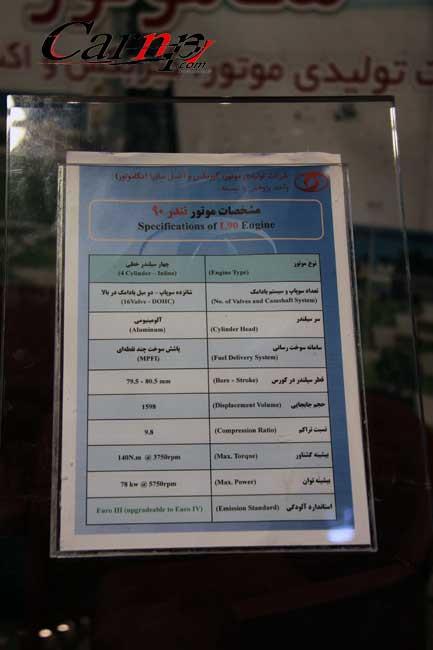 Carnp.com
ت تولیدی موتور، گیربکس و اک
شرکت تولیدی موتور، گیربکس و اکسل سایپا (مگاموتور)
واحد پژوهش و توسعه
مشخصات موتور تندر ۹۰
Specifications of L90 Engine
نوع موتور چهار سیلندر خطی
(Engine Type) (4 Cylinder - Inline)
تعداد سوپاپ و سیستم بادامک شانزده سوپاپ - دو میل بادامک در بالا
(No. of Valves and Camshaft System) (16Valve - DOHC)
سر سیلندر آلومینیومی
(Cylinder Head) (Aluminum)
سامانه سوخت رسانی پاشش سوخت چند نقطه‌ای
(Fuel Delivery System) (MPFI)
قطر سیلندر در کورس (Bore - Stroke) 79.5 - 80.5 mm
حجم جابجایی (Displacement Volume) 1598
نسبت تراکم (Compression Ratio) 9.8
بیشینه گشتاور (Max. Torque) 140N.m @ 3750rpm
بیشینه توان (Max. Power) 78 kw @ 5750rpm
استاندارد آلودگی (Emission Standard) Euro III (upgradeable to Euro IV)